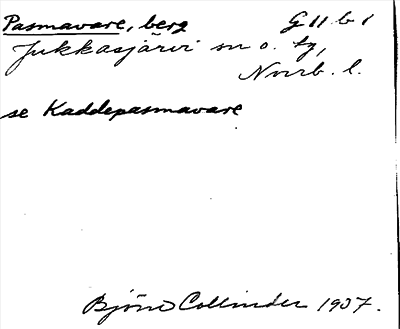 Pasmavare, berg G 11 b 1
Jukkasjärvi sn o. tg,
Norrb. l.
se Kaddepasmavare
Björn Collinder 1937.